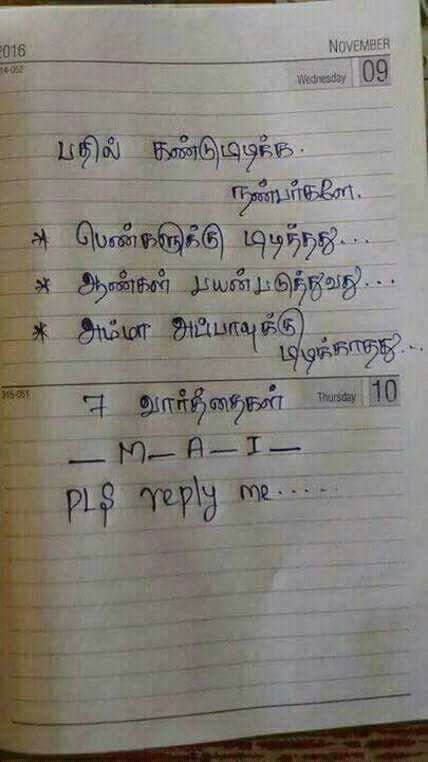 2016 NOVEMBER
Wednesday 09
பதில் கண்டுபிடிக்க.
நண்பர்களே.
* பெண்களுக்கு பிடித்தது...
* ஆண்கள் பயன்படுத்துவது...
* அம்மா அப்பாவுக்கு
பிடிக்காதது...
315-051 Thursday 10
7 வார்த்தைகள்
— M — A — I —
PLS reply me......